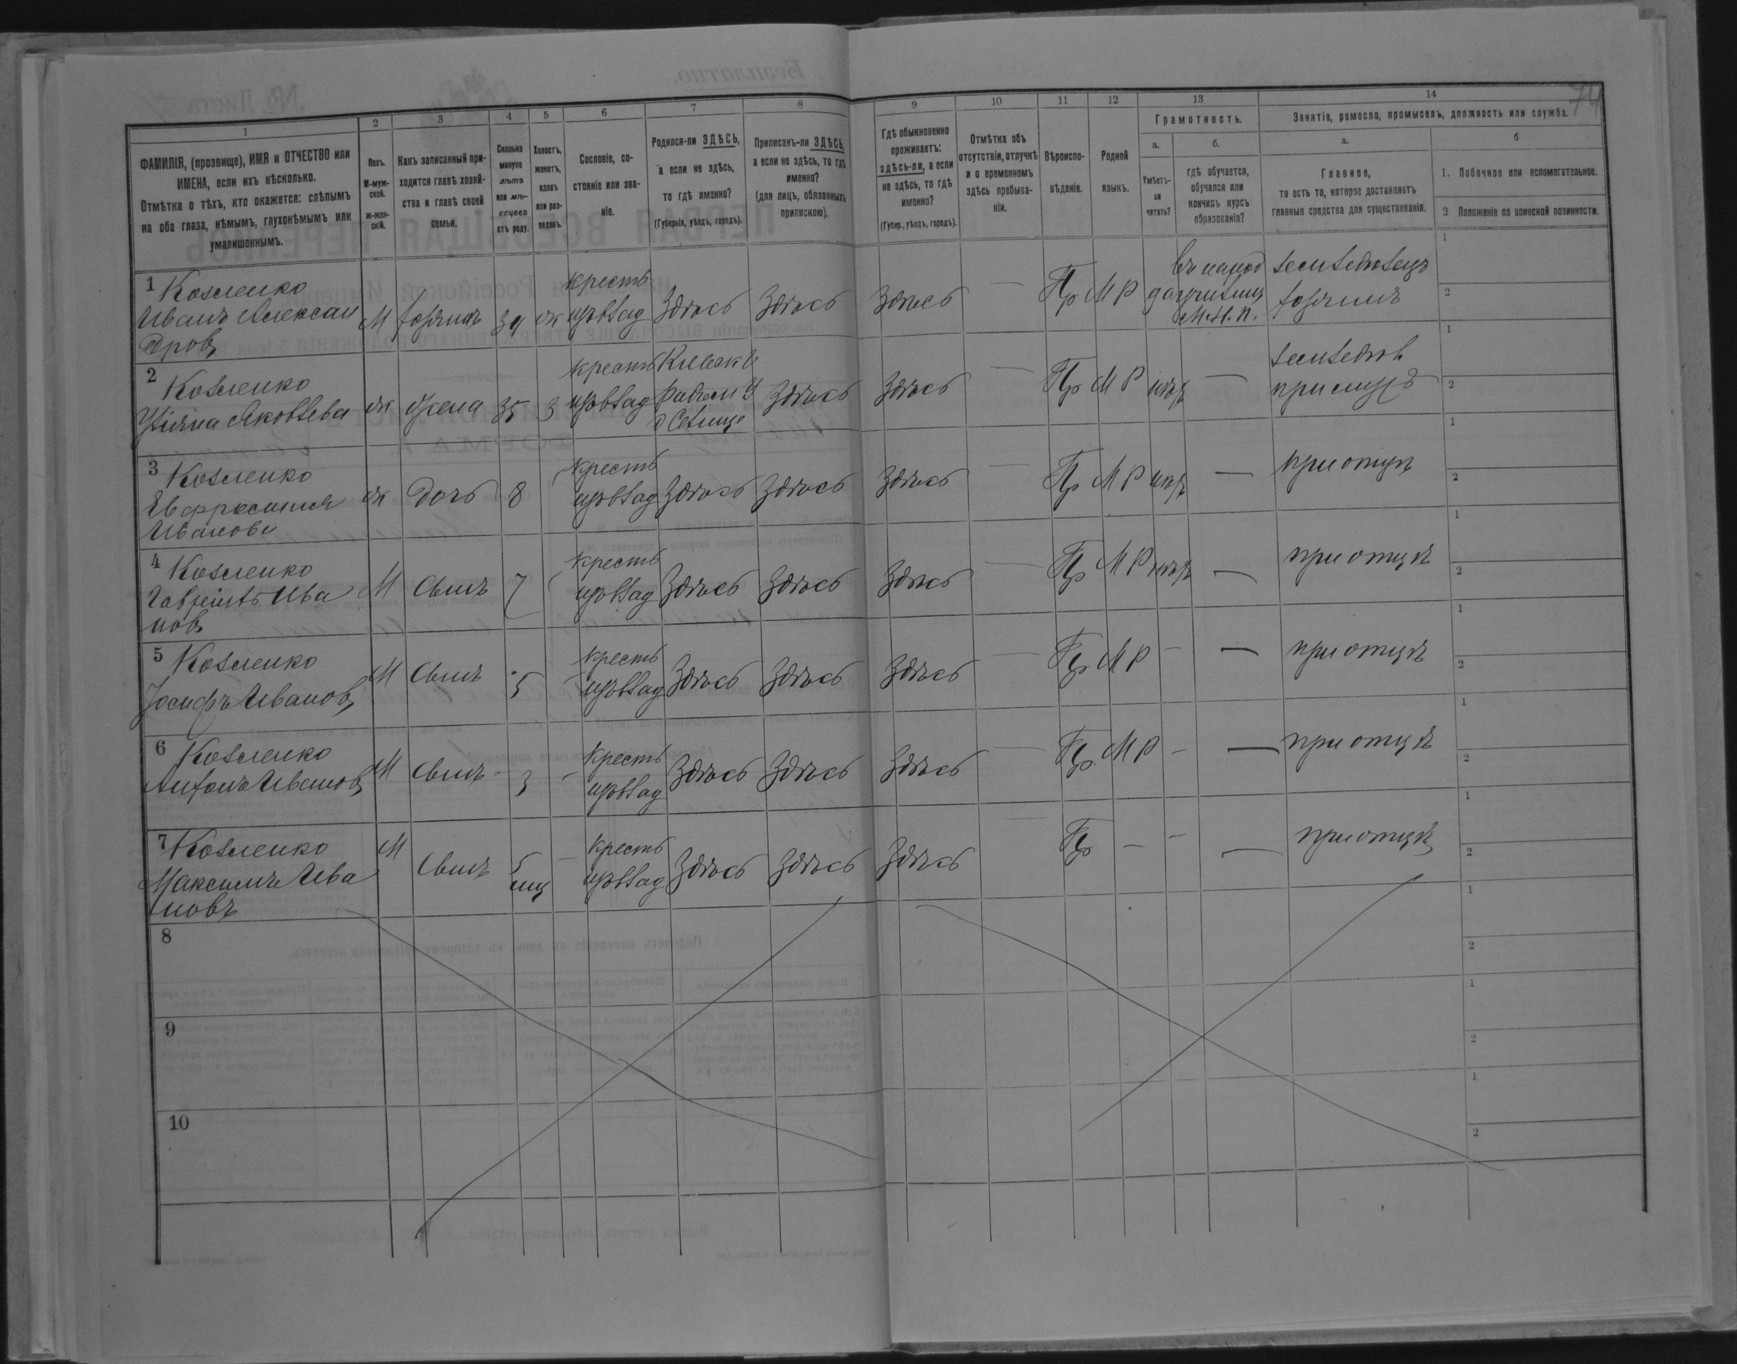 74
1
2
3
4
5
6
7
8
9
10
11
12
13
14
ФАМИЛІЯ, (прозвище), ИМЯ и ОТЧЕСТВО или
ИМЕНА, если ихъ нѣсколько.
Отмѣтка о тѣхъ, кто окажется: слѣпымъ
на оба глаза, нѣмымъ, глухонѣмымъ или
умалишоннымъ.
Полъ.
М-муж-
ской.
ж-жен-
скій.
Какъ записанный при-
ходится главѣ хозяй-
ства и главѣ своей
семьи.
Сколько
минуло
лѣтъ
или мѣ-
сяцевъ
отъ роду.
Холостъ,
женатъ,
вдовъ
или раз-
веденъ.
Сословіе, со-
стояніе или зва-
ніе.
Родился-ли ЗДѢСЬ,
а если не здѣсь,
то гдѣ именно?
(Губернія, уѣздъ, городъ).
Приписанъ-ли ЗДѢСЬ,
а если не здѣсь, то гдѣ
именно?
(для лицъ, обязанныхъ
припискою).
Гдѣ обыкновенно
проживаетъ:
здѣсь-ли, а если
не здѣсь, то гдѣ
именно?
(Губер., уѣздъ, городъ).
Отмѣтка объ
отсутствіи, отлучкѣ
и о временномъ
здѣсь пребыва-
ніи.
Вѣроиспо-
вѣданіе.
Родной
языкъ.
Грамотность.
а.
Умѣетъ-
ли
читать?
б.
гдѣ обучается,
обучался или
кончилъ курсъ
образованія?
Занятіе, ремесло, промыселъ, должность или служба.
а.
Главное,
то есть то, которое доставляетъ
главныя средства для существованія.
б
1. Побочное или вспомогательное.
2 Положеніе по воинской повинности.
1 Козленко
Иванъ Алексан
дров
М хозяинъ 39 ж кресть
изъ влад здѣсь здѣсь здѣсь — Пр М Р
М.Н.П.
хозяинъ
1
2
2 Козленко
Ульяна Яковлева ж жена 35 з крестъ
изъ влад здѣсь здѣсь — Пр М Р нѣт —
1
2
3 Козленко
Евфросинія
Иванова
ж дочь 8 кресть
изъ влад здѣсь здѣсь здѣсь — Пр М Р нѣт — при отцѣ
1
2
4 Козленко
Гавріилъ Ива
нов
М сынъ 7 кресть
изъ влад здѣсь здѣсь здѣсь — Пр М Р нѣт — при отцѣ
1
2
5 Козленко
Іосифъ Иванов
М сынъ 5 кресть
изъ влад здѣсь здѣсь здѣсь — Пр М Р — — при отцѣ
1
2
6 Козленко
Антонъ Иванов
М сынъ 3 — кресть
изъ влад здѣсь здѣсь здѣсь — Пр М Р — — при отцѣ
1
2
7 Козленко
Максимъ Ива
новъ
М сынъ 5
мц — кресть
изъ влад здѣсь здѣсь здѣсь — Пр — — — при отцѣ
1
2
8
1
2
9
1
2
10
1
2